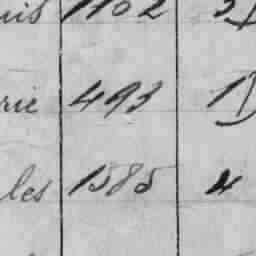 uis 1102
rie 493 1D
les 1585 4